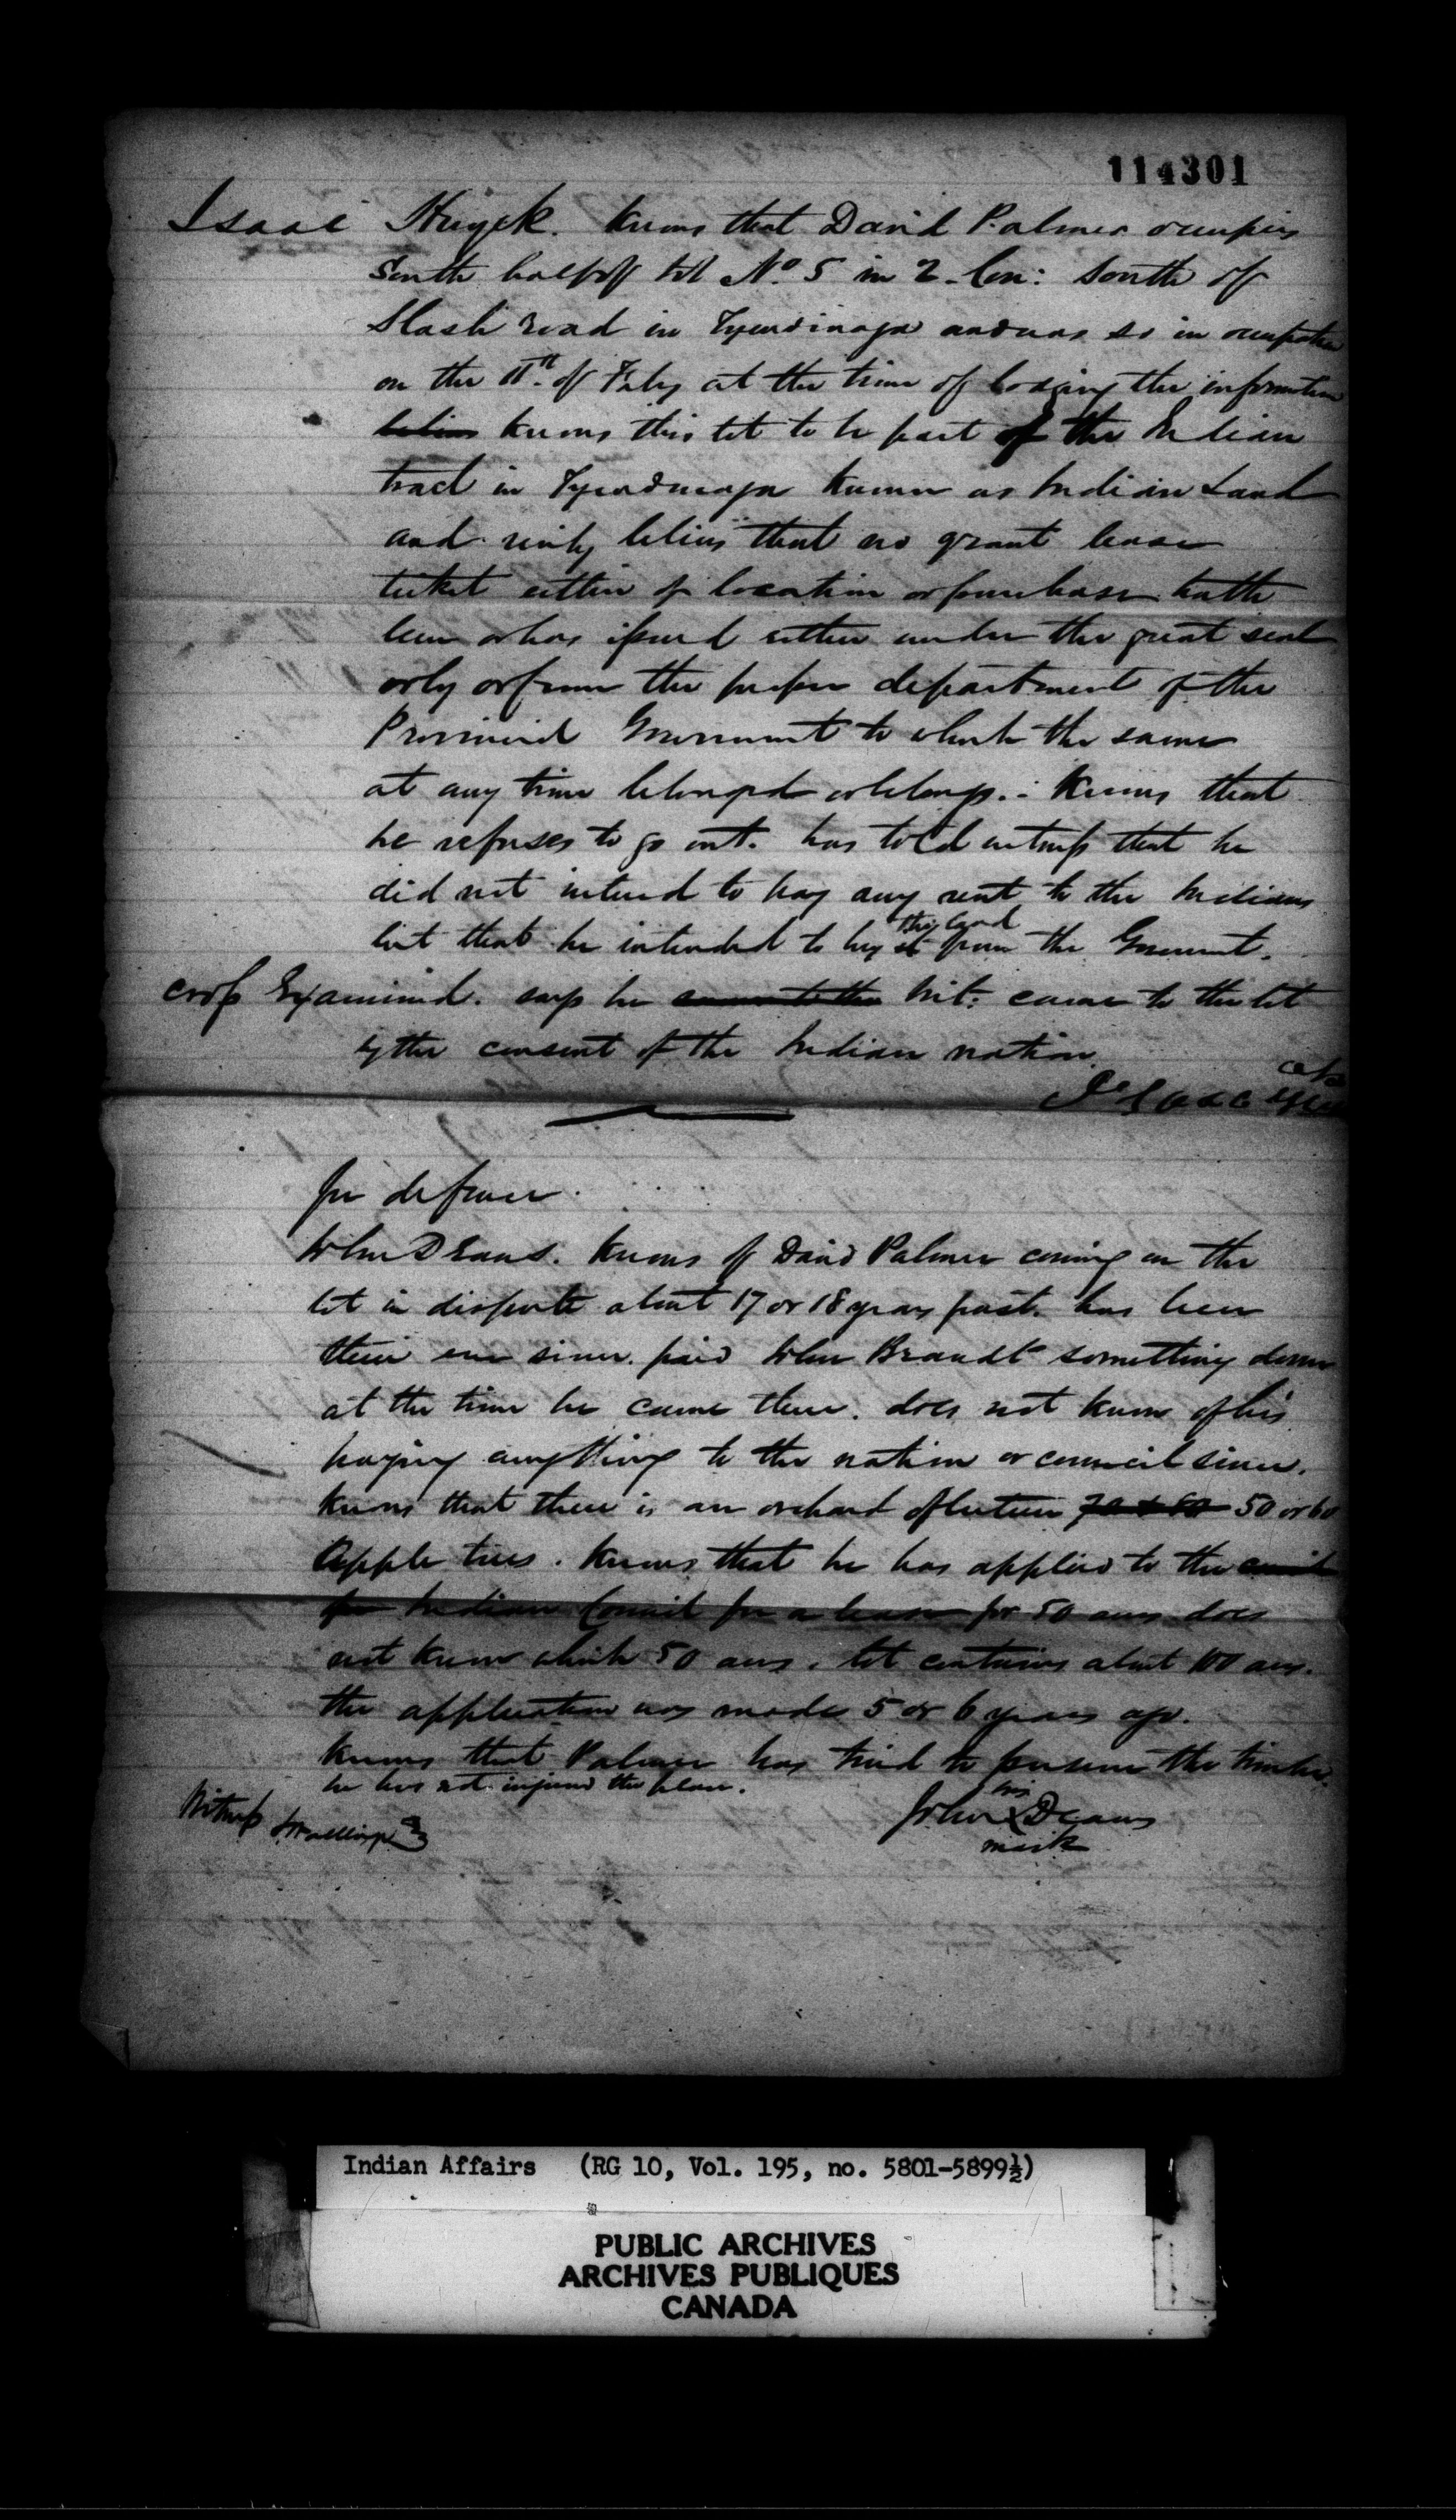 114301
Isaac Huyck. Knows that David Palmer occupies
South half of lot No. 5 in 2. Con: South of
Slash road in Tyendinaga and was so in occupation
on the 11th. of Feby at the time of the information
believes knows this lot to be part of the Indian
tract in Tyendinaga known as Indian Land
and verily believes that no grant lease
ticket either of location or purchase hath
been or has issued either under the great seal
or by or from the proper department of the
Provincial Government to which the same
at any time belonged or belongs. - Knows that
he refuses to go out. has told witness that he
did not intend to pay any rent to the Indians
but that he intended to buy it this land from the Government.
Cross Examined. says he came to the Wit: came to the lot
by the consent of the Indian nation.
Isaac
for defence.
John Deans. Knows of David Palmer coming on the
lot in dispute about 17 or 18 years past. has been
there ever since. paid John Brandt something down
at the time he came there. does not know of his
paying anything to the nation or council since.
Knows that there is an orchard of between 50 or 60
Apple trees. Knows that he has applied to the
for Indian Council for a lease for 50 acres does
not know which 50 acres. lot contains about 100 acres.
the application was made 5 or 6 years ago.
Knows that Palmer has tried to preserve the timber.
he has not injured the place.
his
John X Deans
mark
Witness
Indian Affairs (RG 10, Vol. 195, no. 5801-5899½)
PUBLIC ARCHIVES
ARCHIVES PUBLIQUES
CANADA